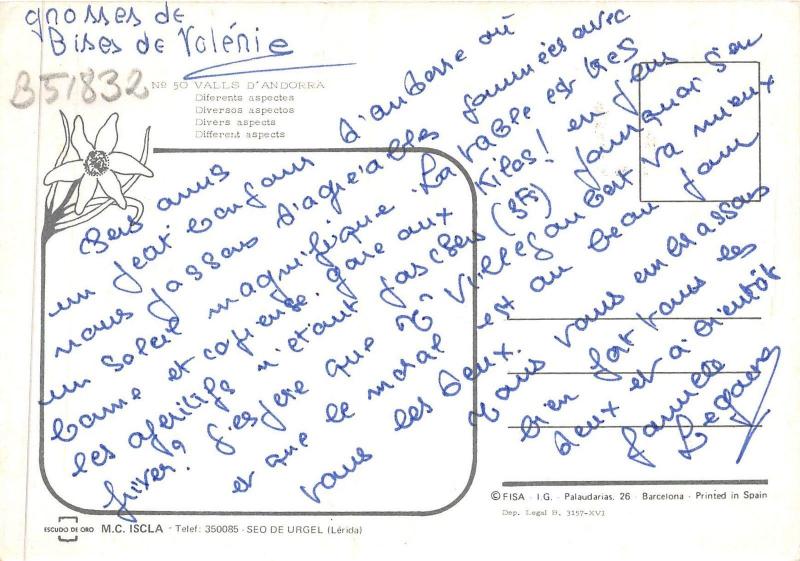 grosses de
Bises de Valérie
B51832
Nº 50 VALLS D'ANDORRA
Diferents aspectes
Diversos aspectos
Divers aspects
Different aspects
Bers amis
un petit bonjour d'andorre où
nous passons d'agréables journées avec
un soleil magnifique. La table est très
bonne et copieuse. gare aux Kilos! en plus
les apéritifs n'étant pas chers (3Fs) pourquoi s'en
priver? J'espère que Villefaubert va mieux
et que le moral est au beau pour
vous les deux. Nous vous embrassons
bien fort tous les
deux et à bientôt
famille
© FISA - I.G. - Palaudarias, 26 - Barcelona - Printed in Spain
Dep. Legal B. 3157-XVI
ESCUDO DE ORO M.C. ISCLA - Telef: 350085 - SEO DE URGEL (Lérida)